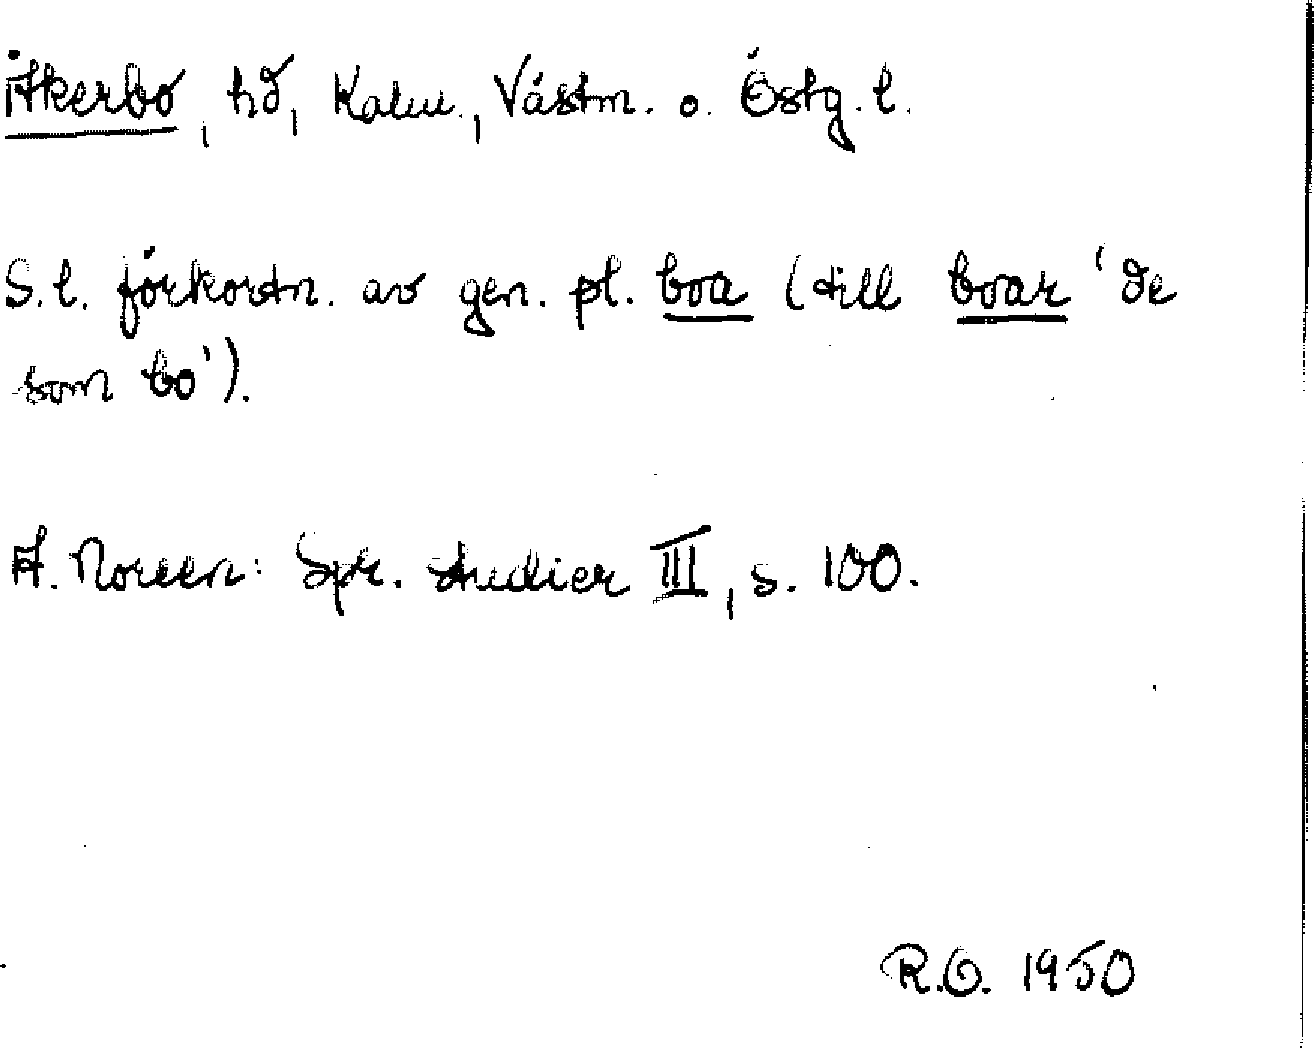 Åkerbo, hd, Kalm., Västm. o. Östg. l.
S.l. förkortn. av gen. pl. boa (till boar 'de
som bo').
A. Noreen: Spr. studier III, s. 100.
R.O. 1950